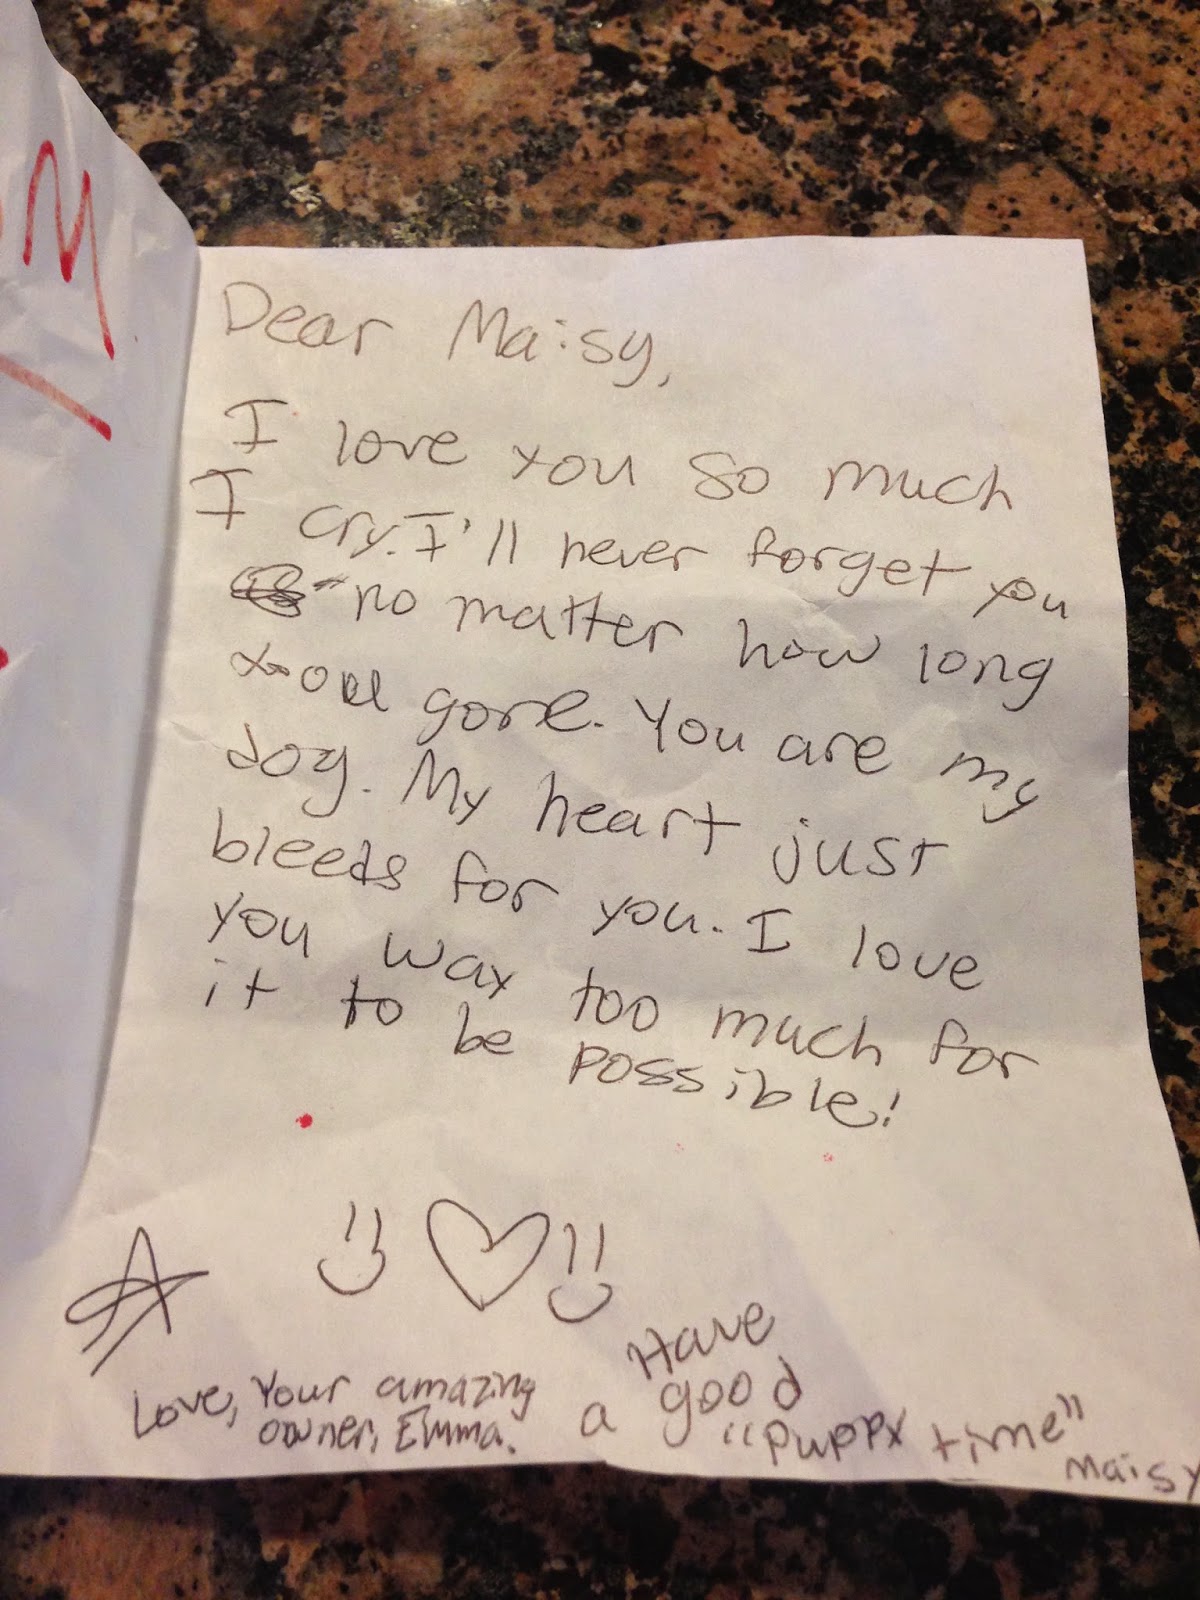 Dear Maisy,
I love you so much
I cry. I'll never forget you
no matter how long
you gone. You are my
dog. My heart just
bleeds for you. I love
you way too much for
it to be possible!
Love, Your amazing
owner, Emma.
Have
a good
"puppy time"
Maisy